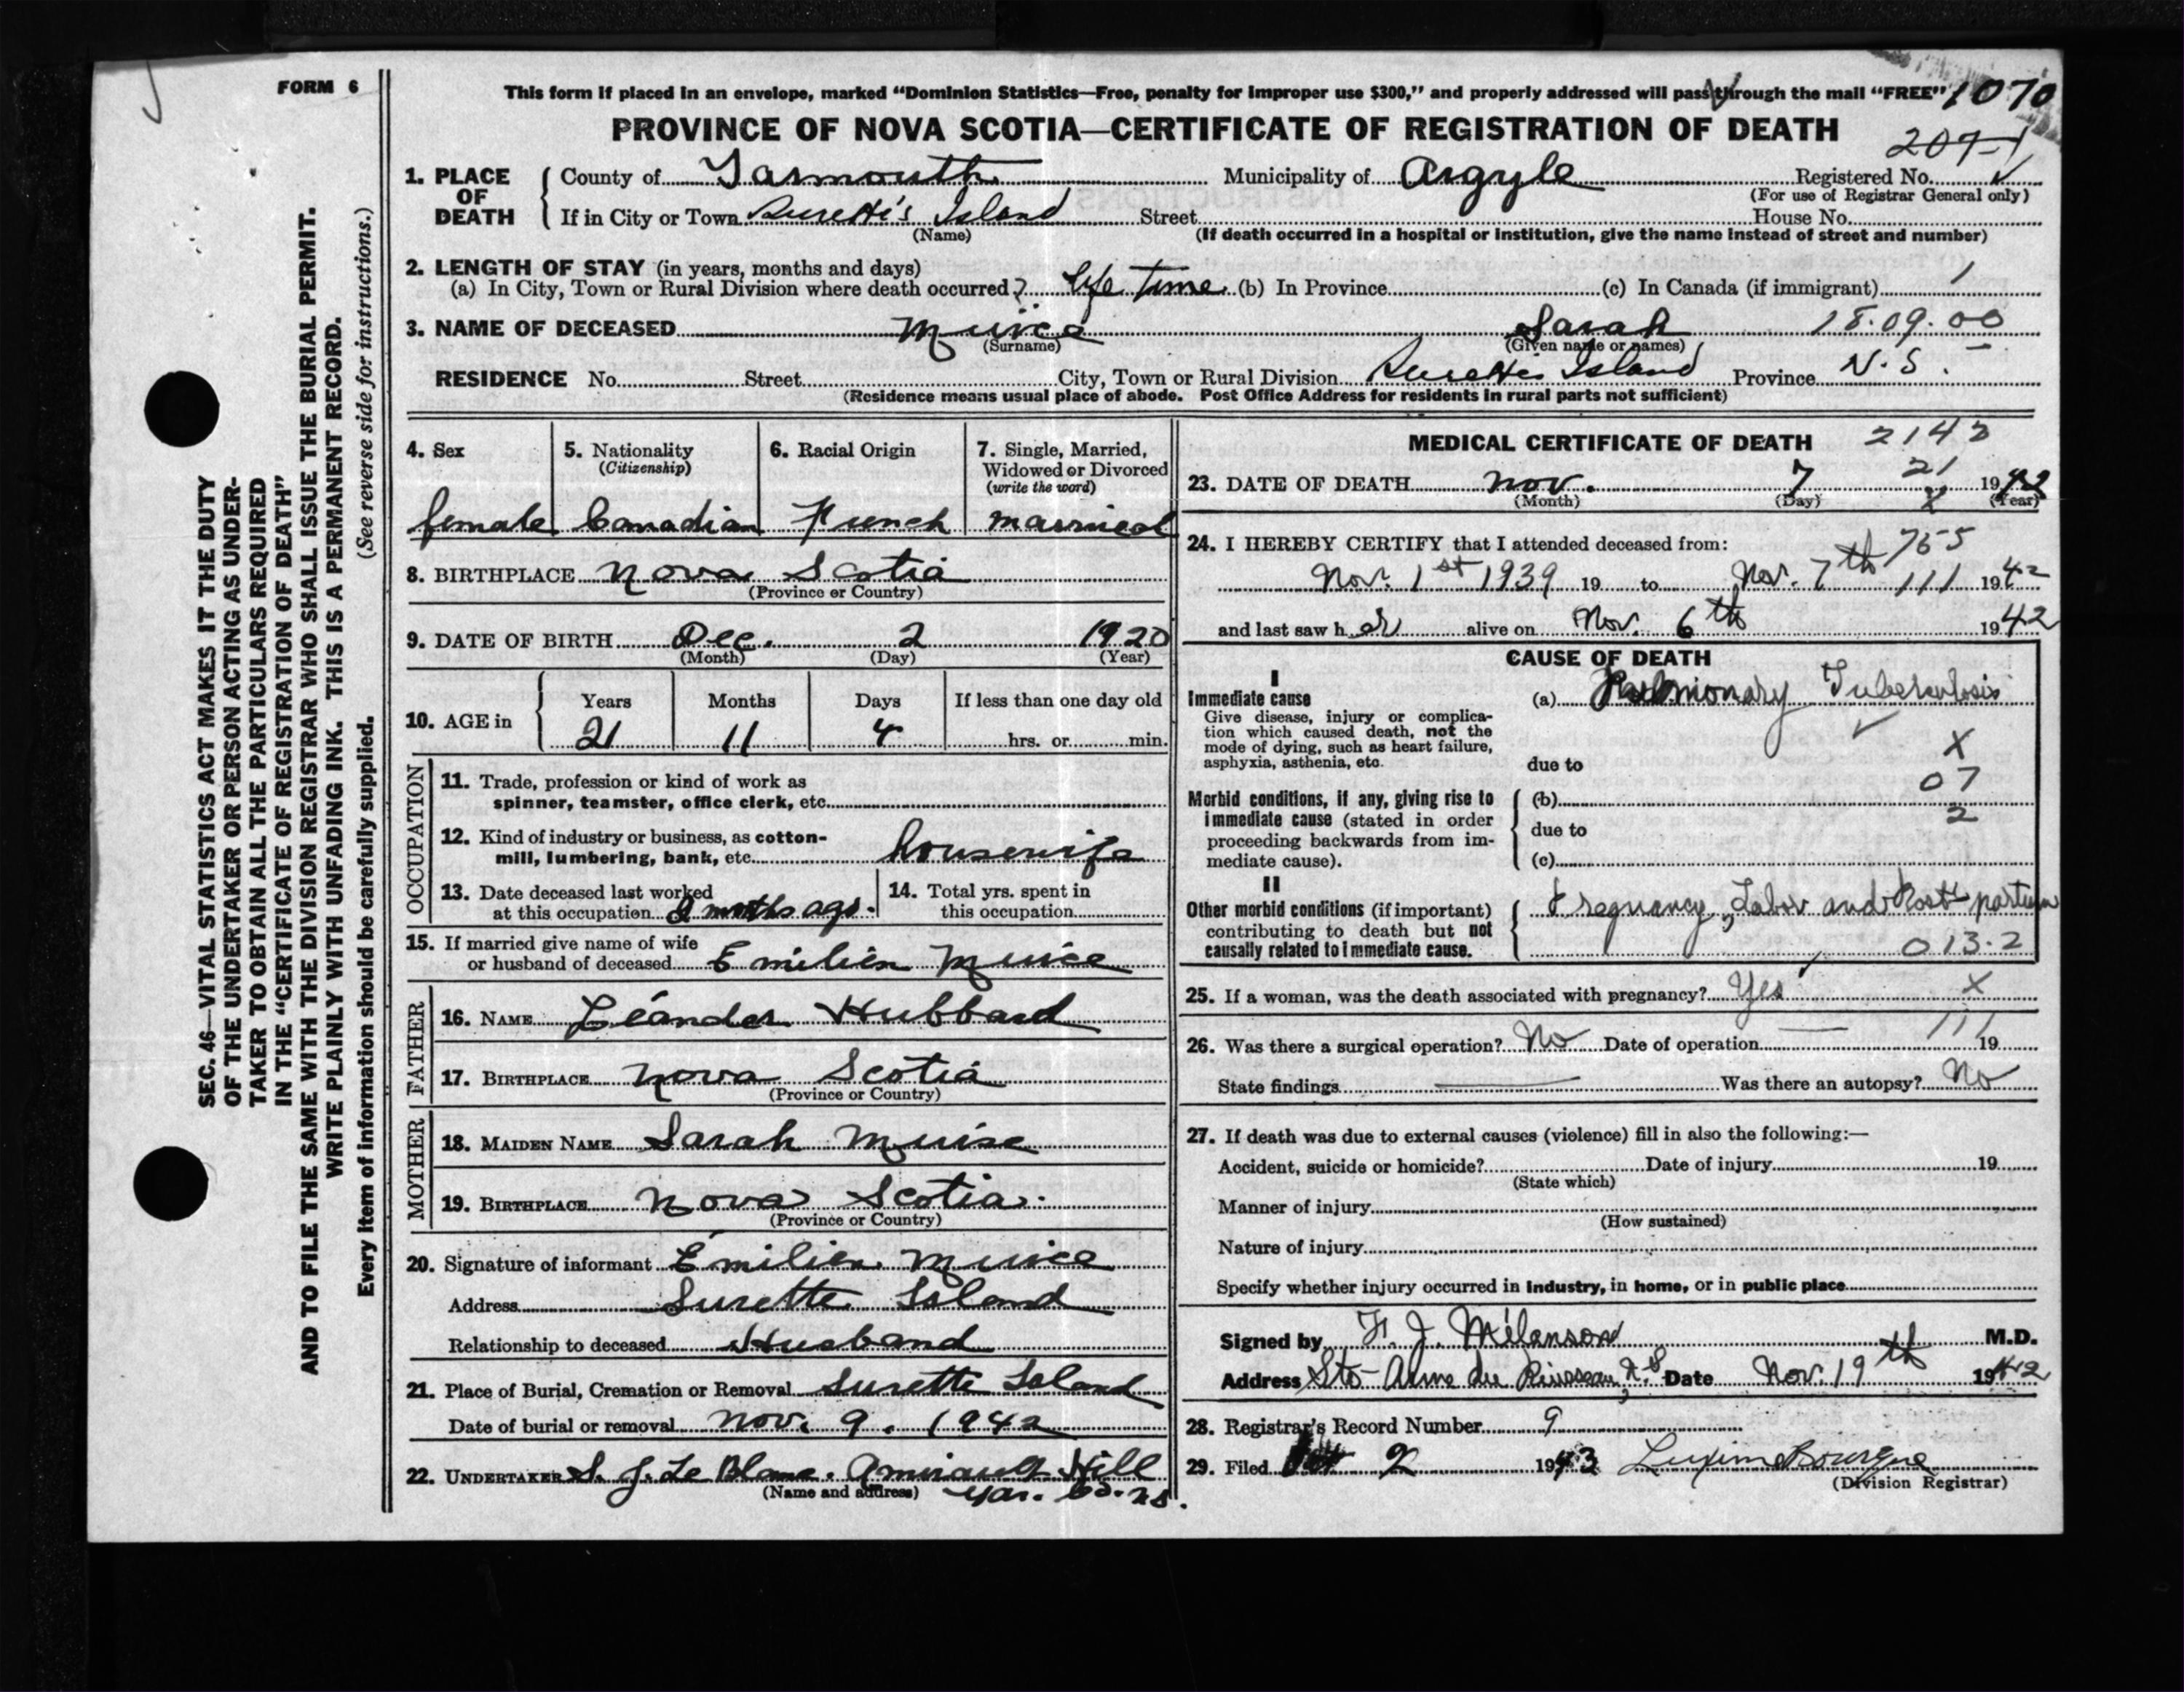 FORM 6
This form if placed in an envelope, marked “Dominion Statistics—Free, penalty for improper use $300,” and properly addressed will pass through the mail “FREE” 1070
PROVINCE OF NOVA SCOTIA—CERTIFICATE OF REGISTRATION OF DEATH
207-1
1. PLACE OF DEATH County of Yarmouth Municipality of Argyle Registered No.
(For use of Registrar General only)
If in City or Town Surette's Island Street House No.
(Name) (If death occurred in a hospital or institution, give the name instead of street and number)
2. LENGTH OF STAY (in years, months and days)
(a) In City, Town or Rural Division where death occurred? Life time (b) In Province (c) In Canada (if immigrant) 1
3. NAME OF DECEASED Muice Sarah 18.09.00
(Surname) (Given name or names)
RESIDENCE No. Street City, Town or Rural Division Surette's Island Province N.S.
(Residence means usual place of abode. Post Office Address for residents in rural parts not sufficient)
4. Sex female
5. Nationality (Citizenship) Canadian
6. Racial Origin French
7. Single, Married, Widowed or Divorced (write the word) married
8. BIRTHPLACE Nova Scotia
(Province or Country)
9. DATE OF BIRTH Dec. 2 1920
(Month) (Day) (Year)
10. AGE in Years Months Days If less than one day old
21 11 4 hrs. or min.
OCCUPATION
11. Trade, profession or kind of work as
spinner, teamster, office clerk, etc.
12. Kind of industry or business, as cotton-
mill, lumbering, bank, etc. housewife
13. Date deceased last worked
at this occupation months ago.
14. Total yrs. spent in
this occupation
15. If married give name of wife
or husband of deceased Emilien Muice
FATHER
16. NAME Léander Hubbard
17. BIRTHPLACE Nova Scotia
(Province or Country)
MOTHER
18. MAIDEN NAME Sarah Muise
19. BIRTHPLACE Nova Scotia.
(Province or Country)
20. Signature of informant Emilien Muice
Address Surette Island
Relationship to deceased Husband
21. Place of Burial, Cremation or Removal Surette Island
Date of burial or removal Nov. 9. 1942
22. UNDERTAKER S. J. Le Blanc. Amirault Hill
(Name and address) Yar. Co. N.S.
MEDICAL CERTIFICATE OF DEATH 2142
21
23. DATE OF DEATH Nov. 7 1942
(Month) (Day) (Year)
X
24. I HEREBY CERTIFY that I attended deceased from: 755
Nov. 1st 1939 19 to Nov. 7th 111 1942
and last saw h er alive on Nov. 6th 1942
CAUSE OF DEATH
I
Immediate cause (a) Pulmonary Tuberculosis
Give disease, injury or complica-
tion which caused death, not the
mode of dying, such as heart failure,
asphyxia, asthenia, etc.
due to X
07
Morbid conditions, if any, giving rise to (b)
immediate cause (stated in order due to 2
proceeding backwards from im-
mediate cause). (c)
II
Other morbid conditions (if important) Pregnancy, Labor and Post partum
contributing to death but not
causally related to immediate cause. 013.2
25. If a woman, was the death associated with pregnancy? Yes X
26. Was there a surgical operation? No Date of operation 111 19
State findings Was there an autopsy? No
27. If death was due to external causes (violence) fill in also the following:—
Accident, suicide or homicide? Date of injury 19
(State which)
Manner of injury
(How sustained)
Nature of injury
Specify whether injury occurred in industry, in home, or in public place
Signed by F. J. Mélanson M.D.
Address Ste Anne du Ruisseau, N.S Date Nov. 19th 1942
28. Registrar's Record Number 9
29. Filed 2 1943 Bourque
(Division Registrar)
SEC. 46—VITAL STATISTICS ACT MAKES IT THE DUTY
OF THE UNDERTAKER OR PERSON ACTING AS UNDER-
TAKER TO OBTAIN ALL THE PARTICULARS REQUIRED
IN THE “CERTIFICATE OF REGISTRATION OF DEATH”
AND TO FILE THE SAME WITH THE DIVISION REGISTRAR WHO SHALL ISSUE THE BURIAL PERMIT.
WRITE PLAINLY WITH UNFADING INK. THIS IS A PERMANENT RECORD.
Every item of information should be carefully supplied. (See reverse side for instructions.)